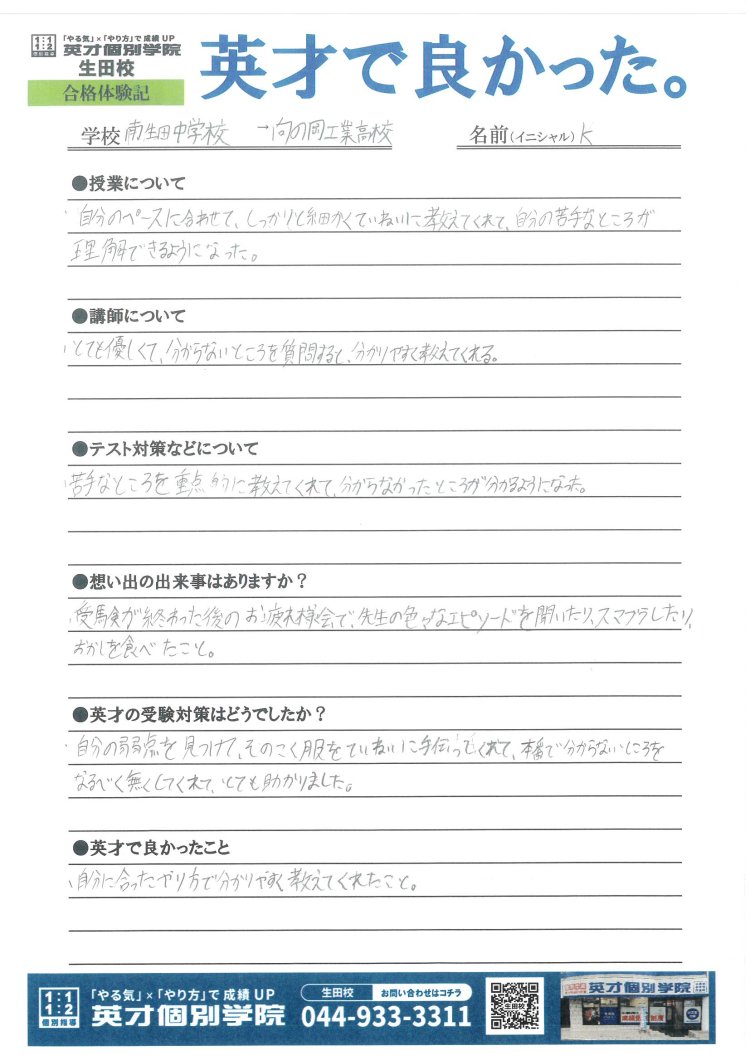 1:1
1:2
個別指導
「やる気」×「やり方」で 成績 UP
英才個別学院
生田校
合格体験記
英才で良かった。
学校 南生田中学校 →向の岡工業高校 名前(イニシャル) K
●授業について
・自分のペースに合わせて、しっかりと細かくていねいに教えてくれて、自分の苦手なところが
理解できるようになった。
●講師について
・とても優しくて、分からないところを質問すると、分かりやすく教えてくれる。
●テスト対策などについて
・苦手なところを重点的に教えてくれて、分からなかったところが分かるようになった。
●想い出の出来事はありますか？
・受験が終わった後のお疲れ様会で、先生の色々なエピソードを聞いたり、スマブラしたり、
おかしを食べたこと。
●英才の受験対策はどうでしたか？
・自分の弱点を見つけて、そのこく服をていねいに手伝ってくれて、本番で分からないところを
なるべく無くしてくれて、とても助かりました。
●英才で良かったこと
・自分に合ったやり方で分かりやすく教えてくれたこと。
1:1
1:2
個別指導
「やる気」×「やり方」で 成績 UP
英才個別学院
生田校 お問い合わせはコチラ
044-933-3311
生田校
英才個別学院